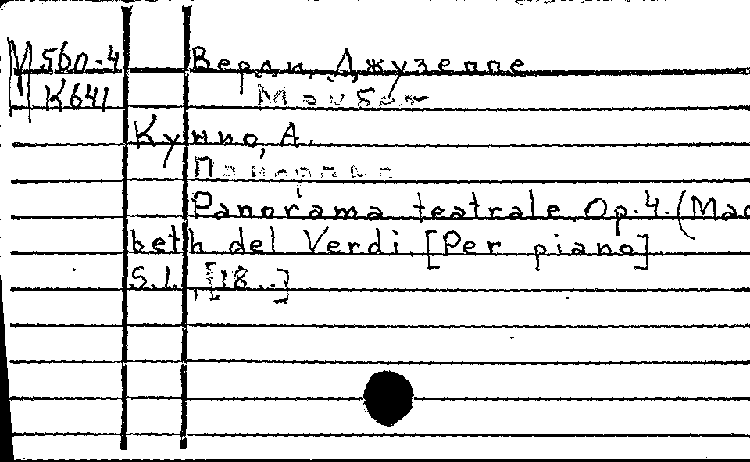 М 560-4 Верди, Джузеппе
К 641 Макбет
Кунио, А.
Панорама
Panorama teatrale. Op. 4. (Mac
beth del Verdi. [Per piano]
S. l., [18..]